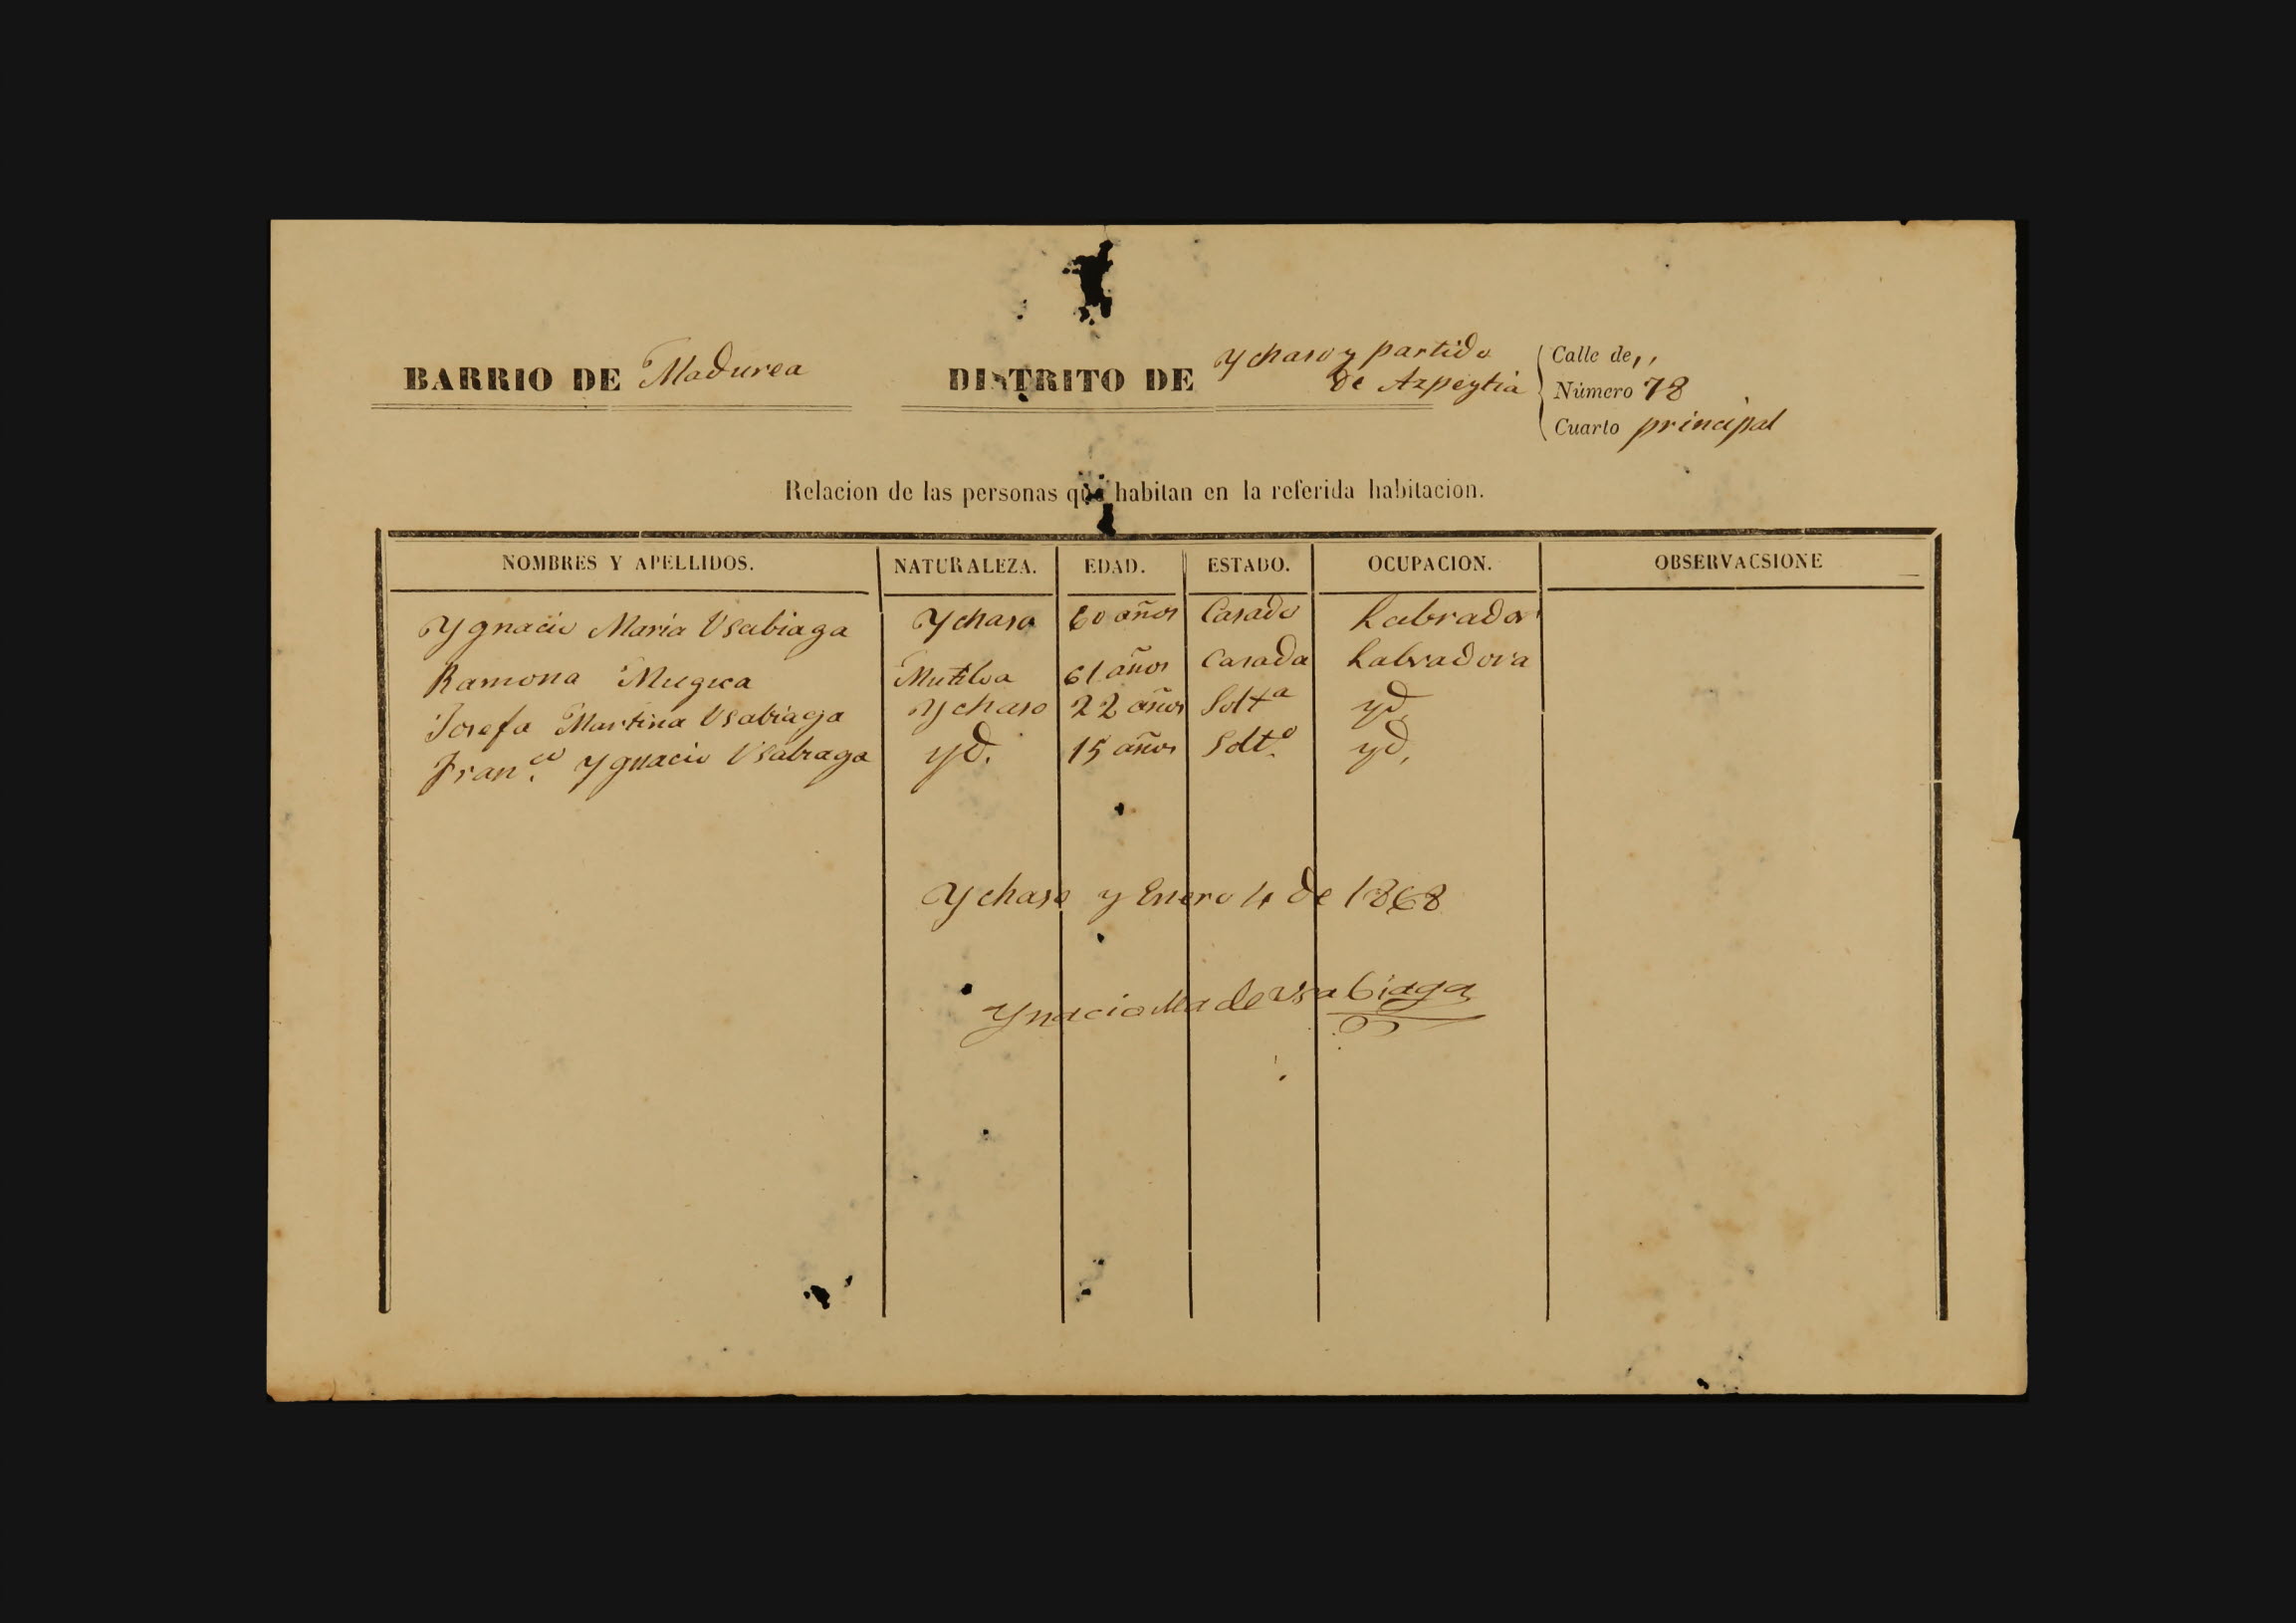 BARRIO DE Madurea DISTRITO DE Ychaso y partido de Azpeytia
Calle de ,,
Número 78
Cuarto principal
Relacion de las personas que habitan en la referida habitacion.
NOMBRES Y APELLIDOS. NATURALEZA. EDAD. ESTADO. OCUPACION. OBSERVACSIONE
Ygnacio Maria Usabiaga Ychaso 60 años Casado Labrador
Ramona Mugica Mutiloa 61 años Casada Labradora
Josefa Martina Usabiaga Ychaso 22 años Solt.a yd.
Fran.co Ygnacio Usabiaga yd. 15 años Solt.o yd.
Ychaso y Enero 4 de 1868
Ynacio Ma de Usabiaga